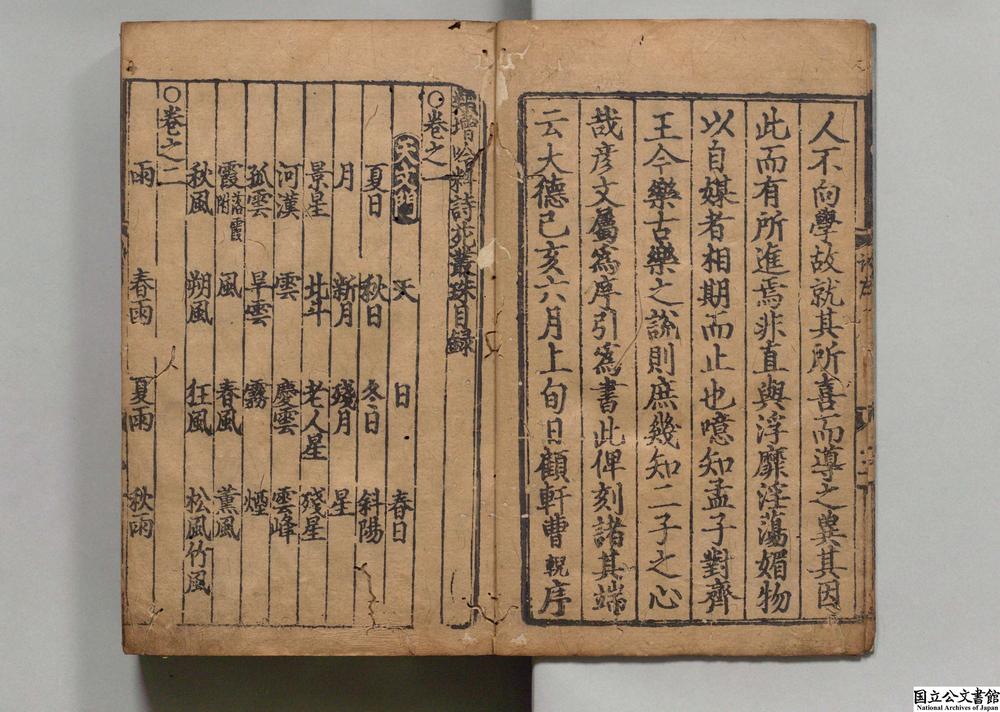 人不向學故就其所喜而導之兾其因
此而有所進焉非直與浮靡淫蕩媚物
以自媒者相期而止也噫知孟子對齊
王今樂古樂之說則庶幾知二子之心
哉彦文屬為序引為書此俾刻諸其端
云大德己亥六月上旬日顧軒曹輗序
增吟料詩苑叢珠目録
○卷之一
天文門 天 日 春日
夏日 秋日 冬日 斜陽
月 新月 殘月 星
景星 北斗 老人星 殘星
河漢 雲 慶雲 雲峰
孤雲 旱雲 霧 煙
霞附落霞 風 春風 薰風
秋風 朔風 狂風 松風竹風
○卷之二
雨 春雨 夏雨 秋雨
国立公文書館
National Archives of Japan